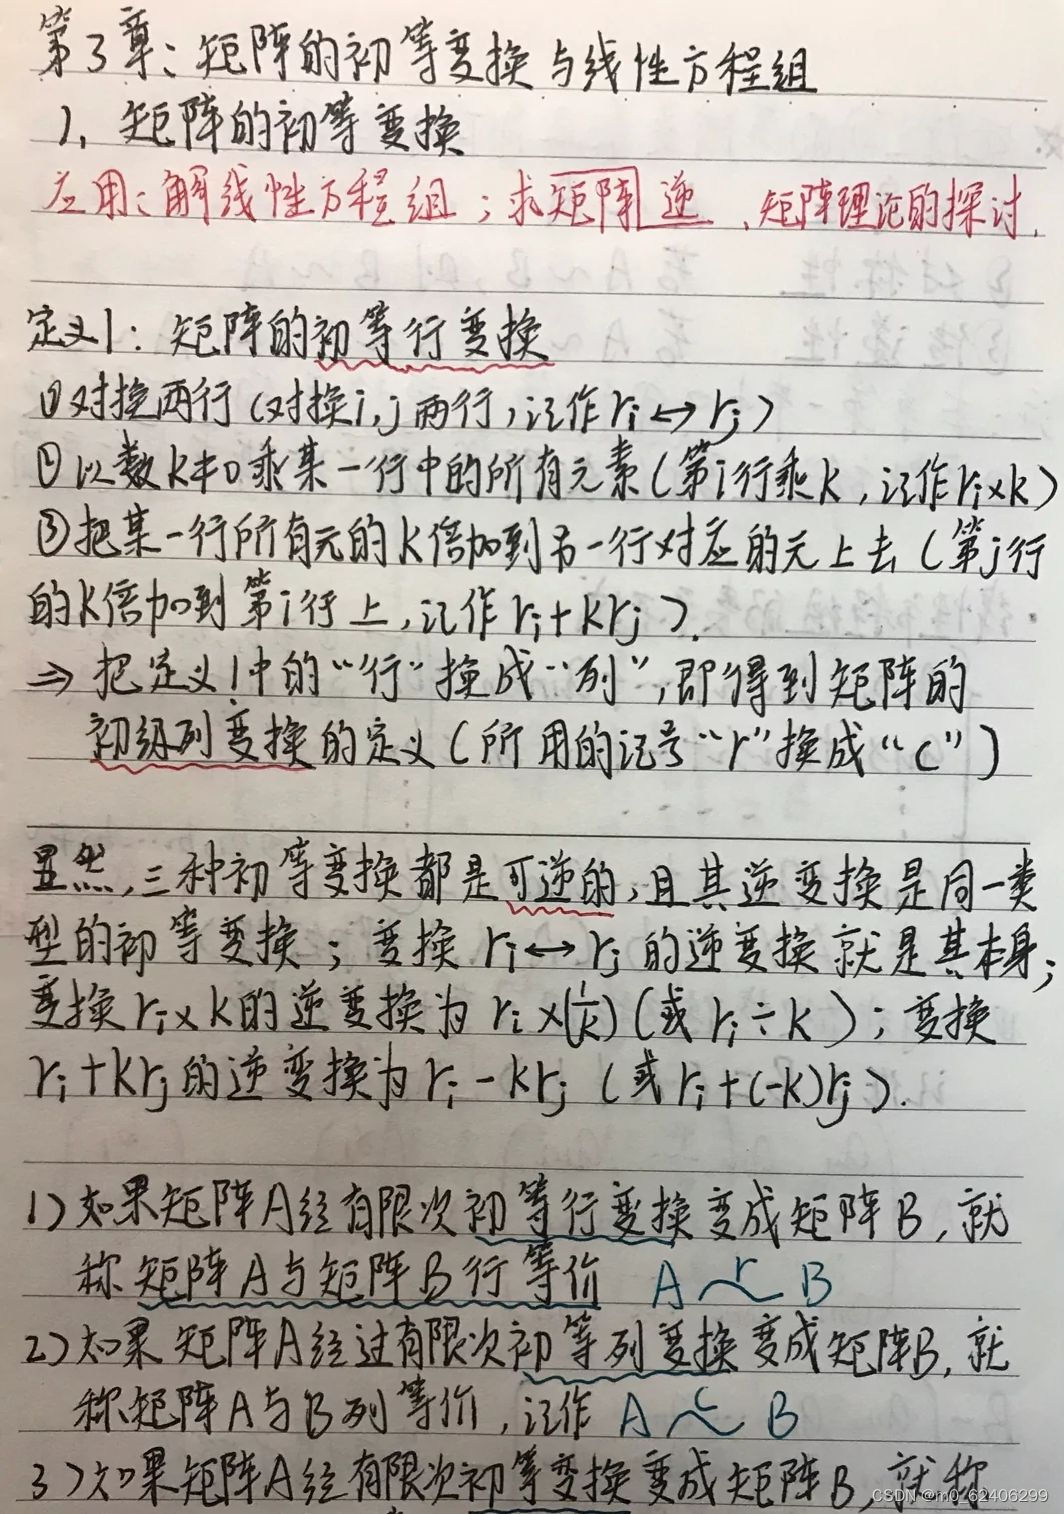 第3章：矩阵的初等变换与线性方程组
1，矩阵的初等变换
应用：解线性方程组；求矩阵逆、矩阵理论的探讨.
定义1：矩阵的初等行变换
①对换两行（对换i,j两行，记作ri↔rj）
②以数k≠0乘某一行中的所有元素（第i行乘k，记作ri×k）
③把某一行所有元的k倍加到另一行对应的元上去（第j行
的k倍加到第i行上，记作ri+krj）.
⇒把定义1中的“行”换成“列”，即得到矩阵的
初级列变换的定义（所用的记号“r”换成“c”）
显然，三种初等变换都是可逆的，且其逆变换是同一类
型的初等变换；变换ri↔rj的逆变换就是其本身；
变换ri×k的逆变换为ri×(1/k)（或ri÷k）；变换
ri+krj的逆变换为ri-krj（或ri+(-k)rj）.
1）如果矩阵A经有限次初等行变换变成矩阵B，就
称矩阵A与矩阵B行等价 A r~ B
2）如果矩阵A经过有限次初等列变换变成矩阵B，就
称矩阵A与B列等价，记作 A c~ B
3）如果矩阵A经有限次初等变换变成矩阵B，就称
CSDN @m0_62406299